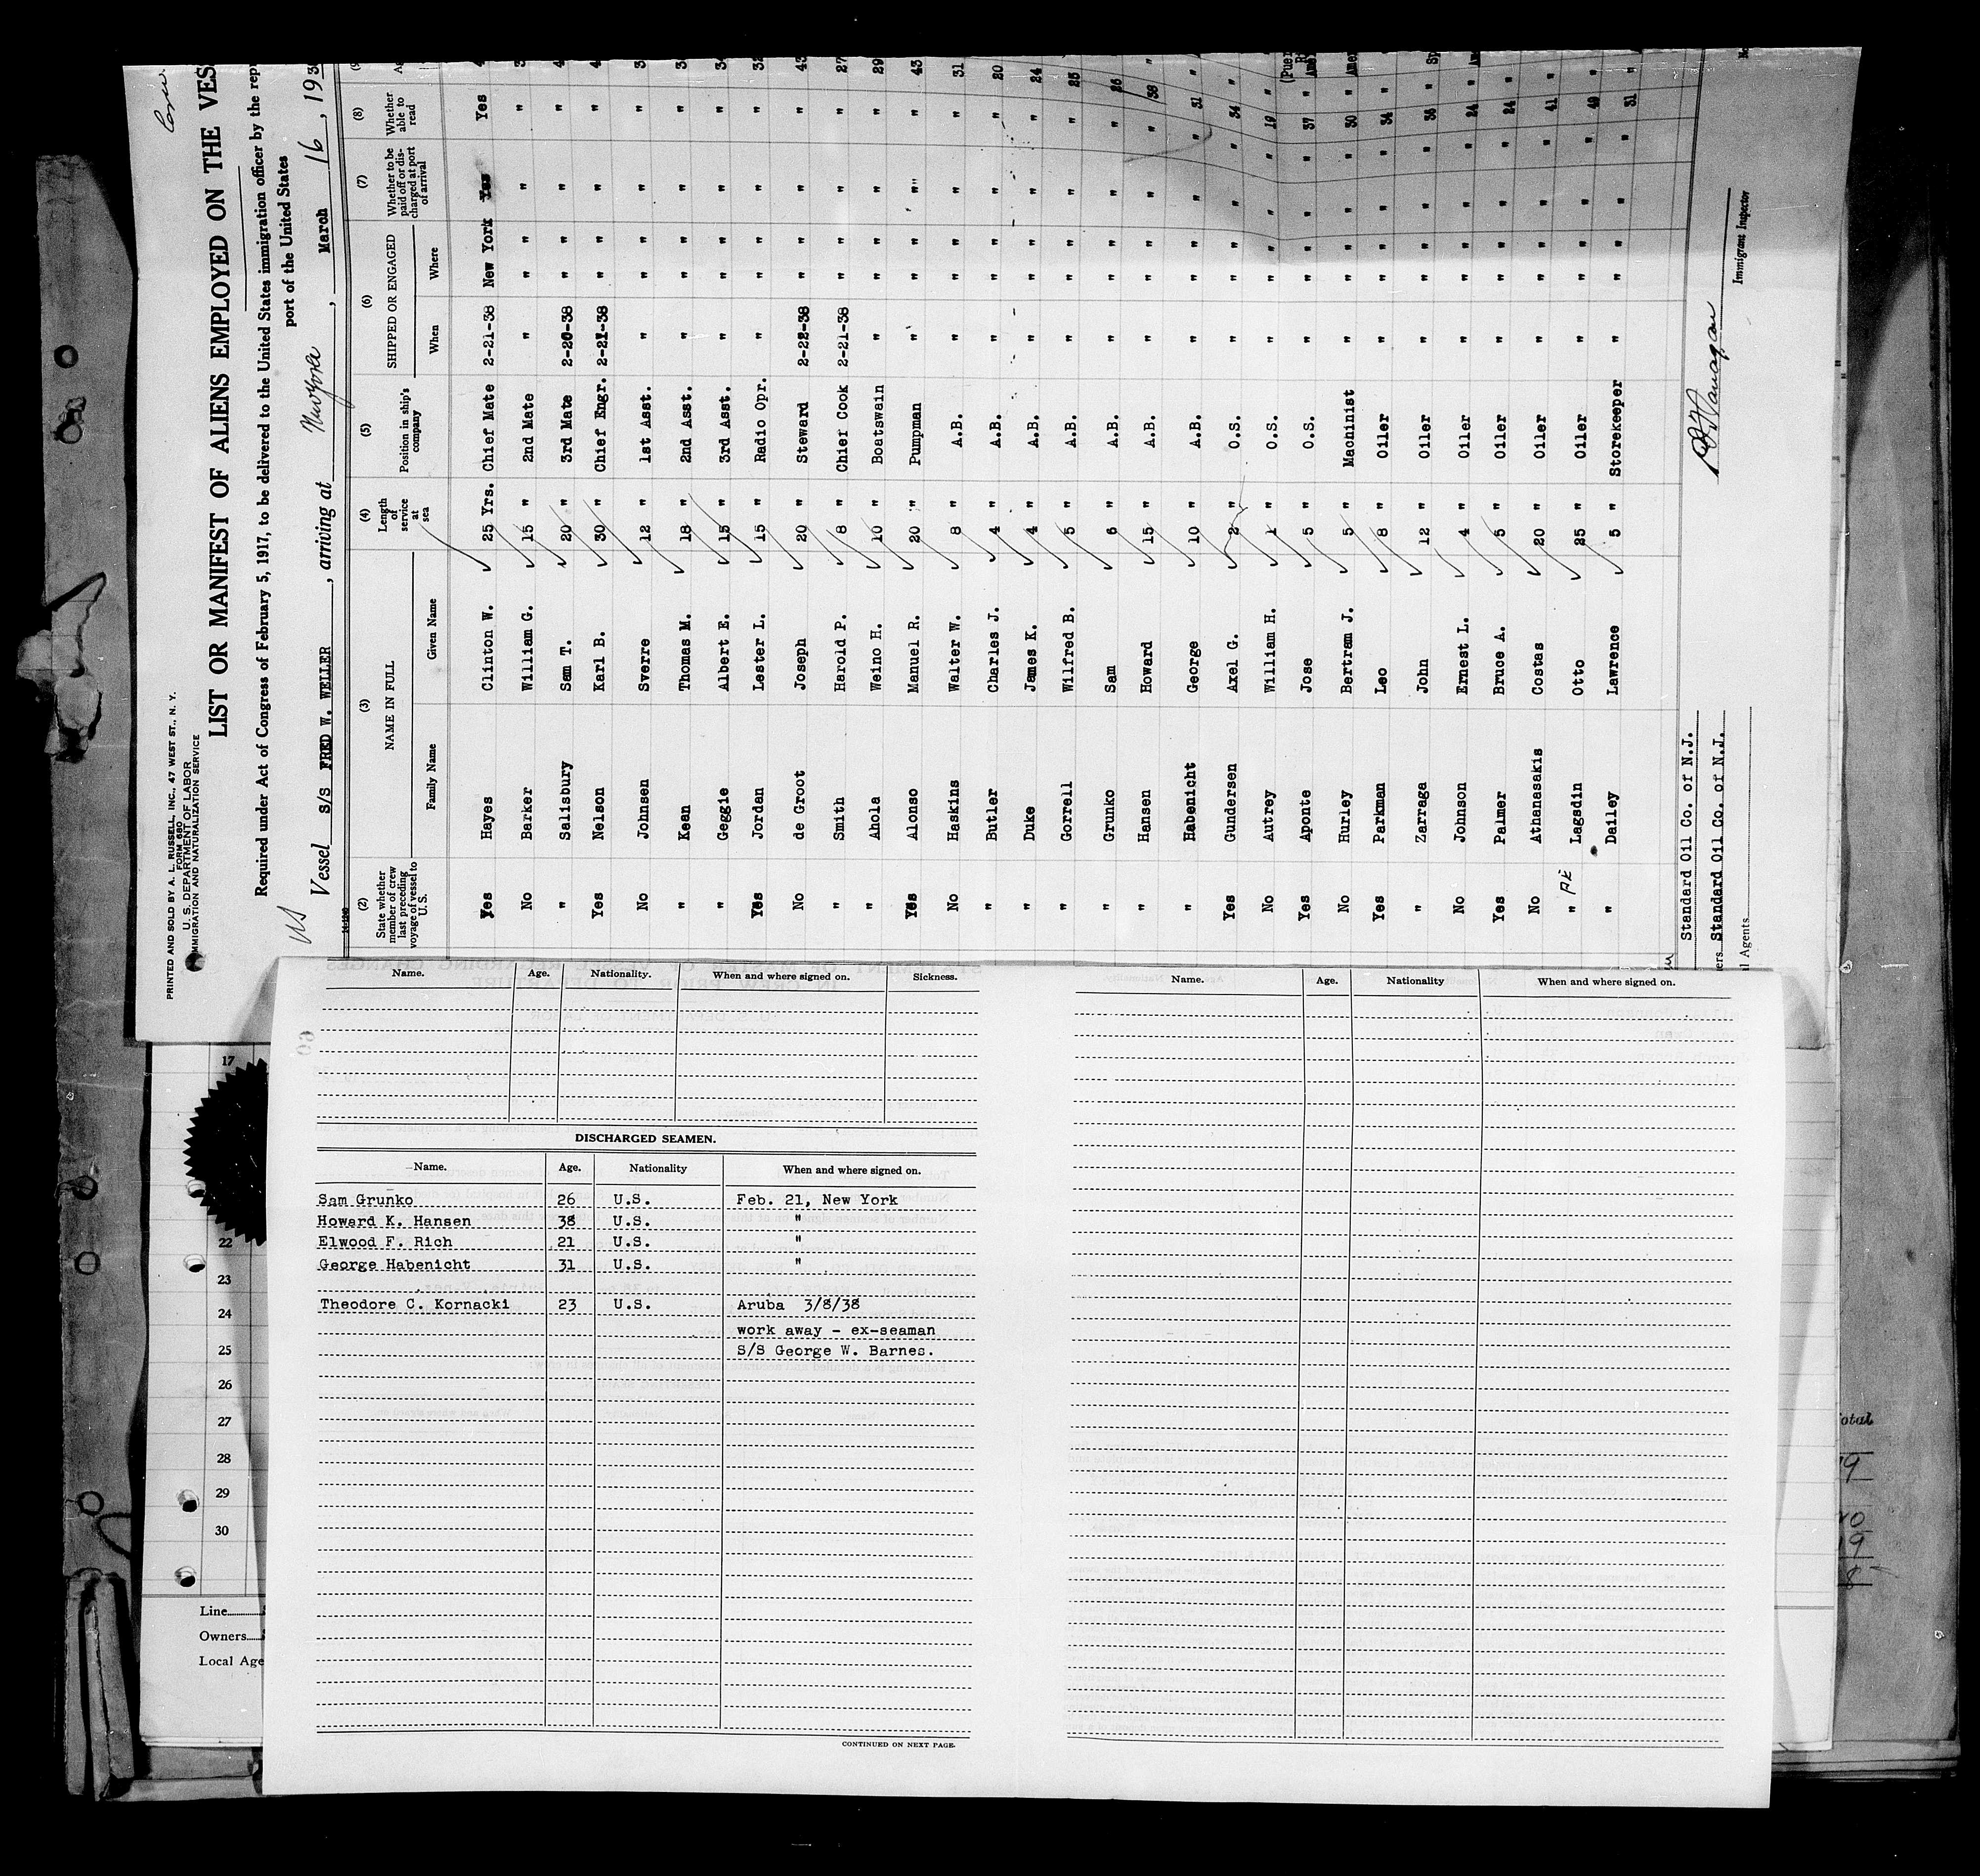 PRINTED AND SOLD BY A. L. RUSSELL, INC., 47 WEST ST., N. Y.
FORM 680
U. S. DEPARTMENT OF LABOR
IMMIGRATION AND NATURALIZATION SERVICE
LIST OR MANIFEST OF ALIENS EMPLOYED ON THE VES
Required under Act of Congress of February 5, 1917, to be delivered to the United States immigration officer by the rep
port of the United States
US
Vessel S/S FRED W. WELLER, arriving at New York, March 16, 193
(2) (3) (4) (5) (6) (7) (8)
State whether member of crew last preceding voyage of vessel to U. S.
NAME IN FULL
Family Name Given Name
Length of service at sea
Position in ship's company
SHIPPED OR ENGAGED
When Where
Whether to be paid off or discharged at port of arrival
Whether able to read
Yes Hayes Clinton W. 25 Yrs. Chief Mate 2-21-38 New York Yes Yes
No Barker William G. 15 " 2nd Mate " " " " "
" Salisbury Sam T. 20 " 3rd Mate 2-20-38 " " " "
Yes Nelson Karl B. 30 " Chief Engr. 2-21-38 " " " "
No Johnsen Sverre 12 " 1st Asst. " " " " "
" Kean Thomas M. 18 " 2nd Asst. " " " " "
" Geggie Albert E. 15 " 3rd Asst. " " " " "
Yes Jordan Lester L. 15 " Radio Opr. " " " " "
No de Groot Joseph 20 " Steward 2-22-38 " " " " 43
" Smith Harold P. 8 " Chief Cook 2-21-38 " " " " 27
" Ahola Weino H. 10 " Boatswain " " " " " 29
Yes Alonso Manuel R. 20 " Pumpman " " " " " 43
No Haskins Walter W. 8 " A.B. " " " " " 31
" Butler Charles J. 4 " A.B. " " " " " 20
" Duke James K. 4 " A.B. " " " " " 24
" Gorrell Wilfred B. 5 " A.B. " " " " " 25
" Grunko Sam 6 " A.B. " " " " " 26
" Hansen Howard 15 " A.B. " " " " " 38
" Habenicht George 10 " A.B. " " " " " 31
Yes Gundersen Axel G. 2 " O.S. " " " " " 34
No Autrey William H. 1 " O.S. " " " " " 19
Yes Aponte Jose 5 " O.S. " " " " " 37
No Hurley Bertram J. 5 " Machinist " " " " " 30
Yes Parkman Leo 8 " Oiler " " " " " 34
" Zarraga John 12 " Oiler " " " " " 36
No Johnson Ernest L. 4 " Oiler " " " " " 24
Yes Palmer Bruce A. 5 " Oiler " " " " " 24
No Athanasakis Costas 20 " Oiler " " " " " 41
" Lagsdin Otto 25 " Oiler " " " " " 49
" Dailey Lawrence 5 " Storekeeper " " " " " 31
Standard Oil Co. of N.J.
ers. Standard Oil Co. of N.J.
l Agents
Immigrant Inspector
Name. Age. Nationality. When and where signed on. Sickness.
DISCHARGED SEAMEN.
Name. Age. Nationality When and where signed on.
Sam Grunko 26 U.S. Feb. 21, New York
Howard K. Hansen 38 U.S. "
Elwood F. Rich 21 U.S. "
George Habenicht 31 U.S. "
Theodore C. Kornacki 23 U.S. Aruba 3/8/38
work away - ex-seaman
S/S George W. Barnes.
CONTINUED ON NEXT PAGE.
Name. Age. Nationality When and where signed on.
17
22
23
24
25
26
27
28
29
30
Line
Owners
Local Age
otal
19